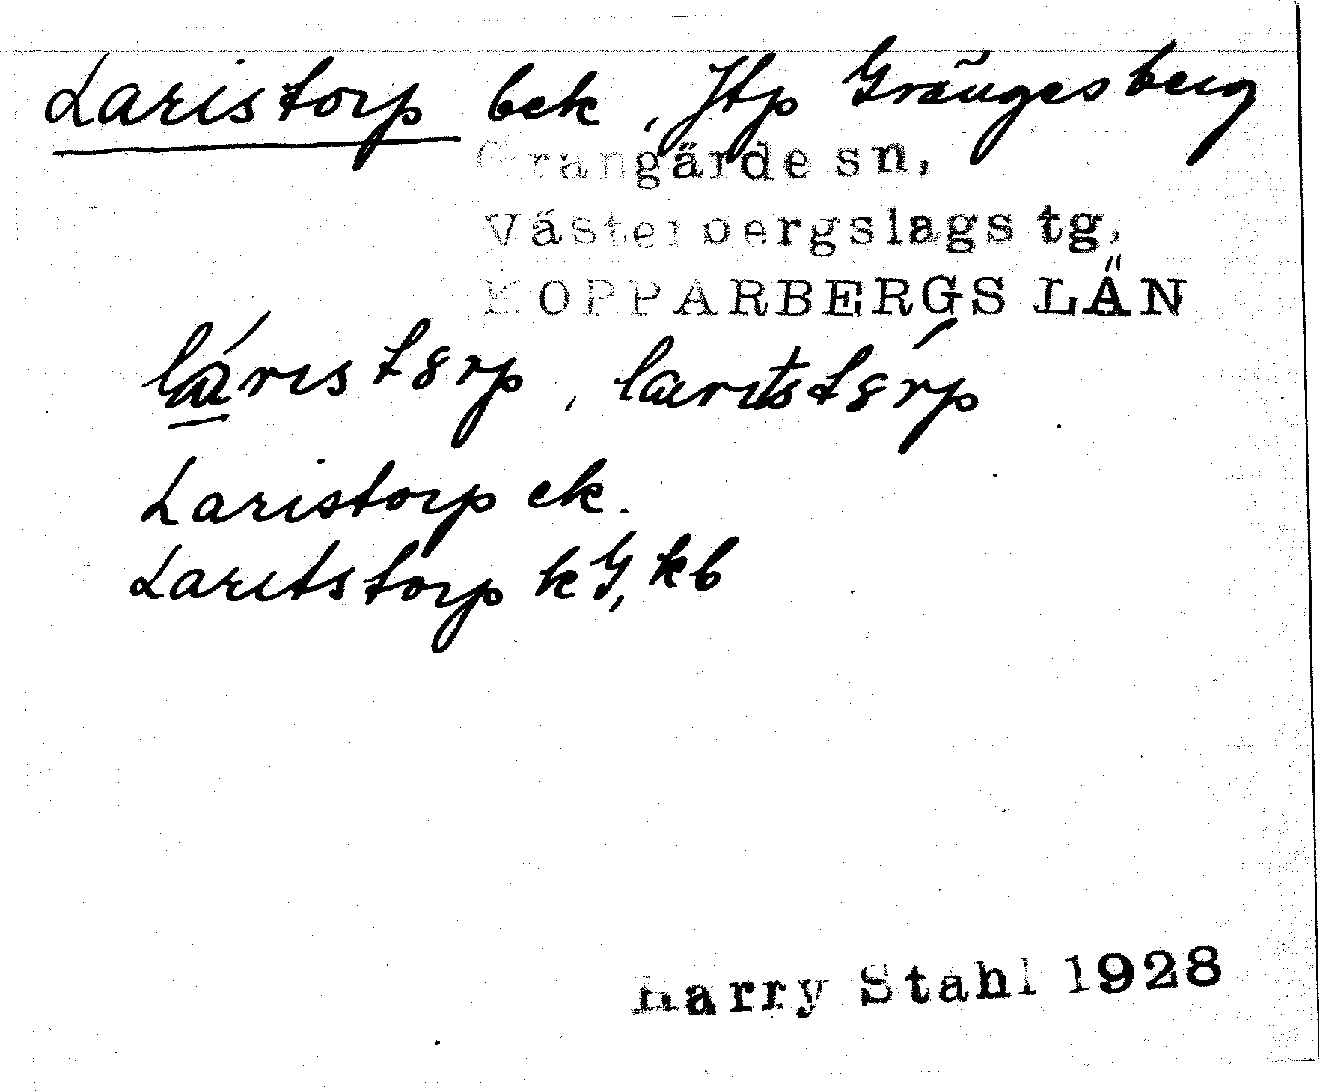 Laristorp bek, Jtp Grängesberg
Grangärde sn,
Västerbergslags tg,
KOPPARBERGS LÄN
láristȣrp, laritstȣ́rp
Laristorp ek.
Laritstorp kG, kb
Harry Ståhl 1928